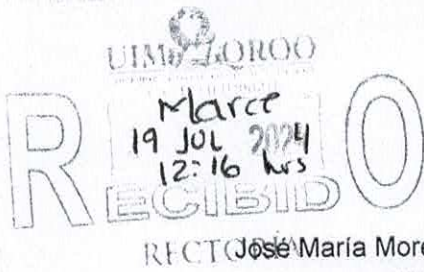 UIMQROO
Marce
19 JUL 2024
12:16 hrs
RECIBIDO
RECTORÍA
José María More